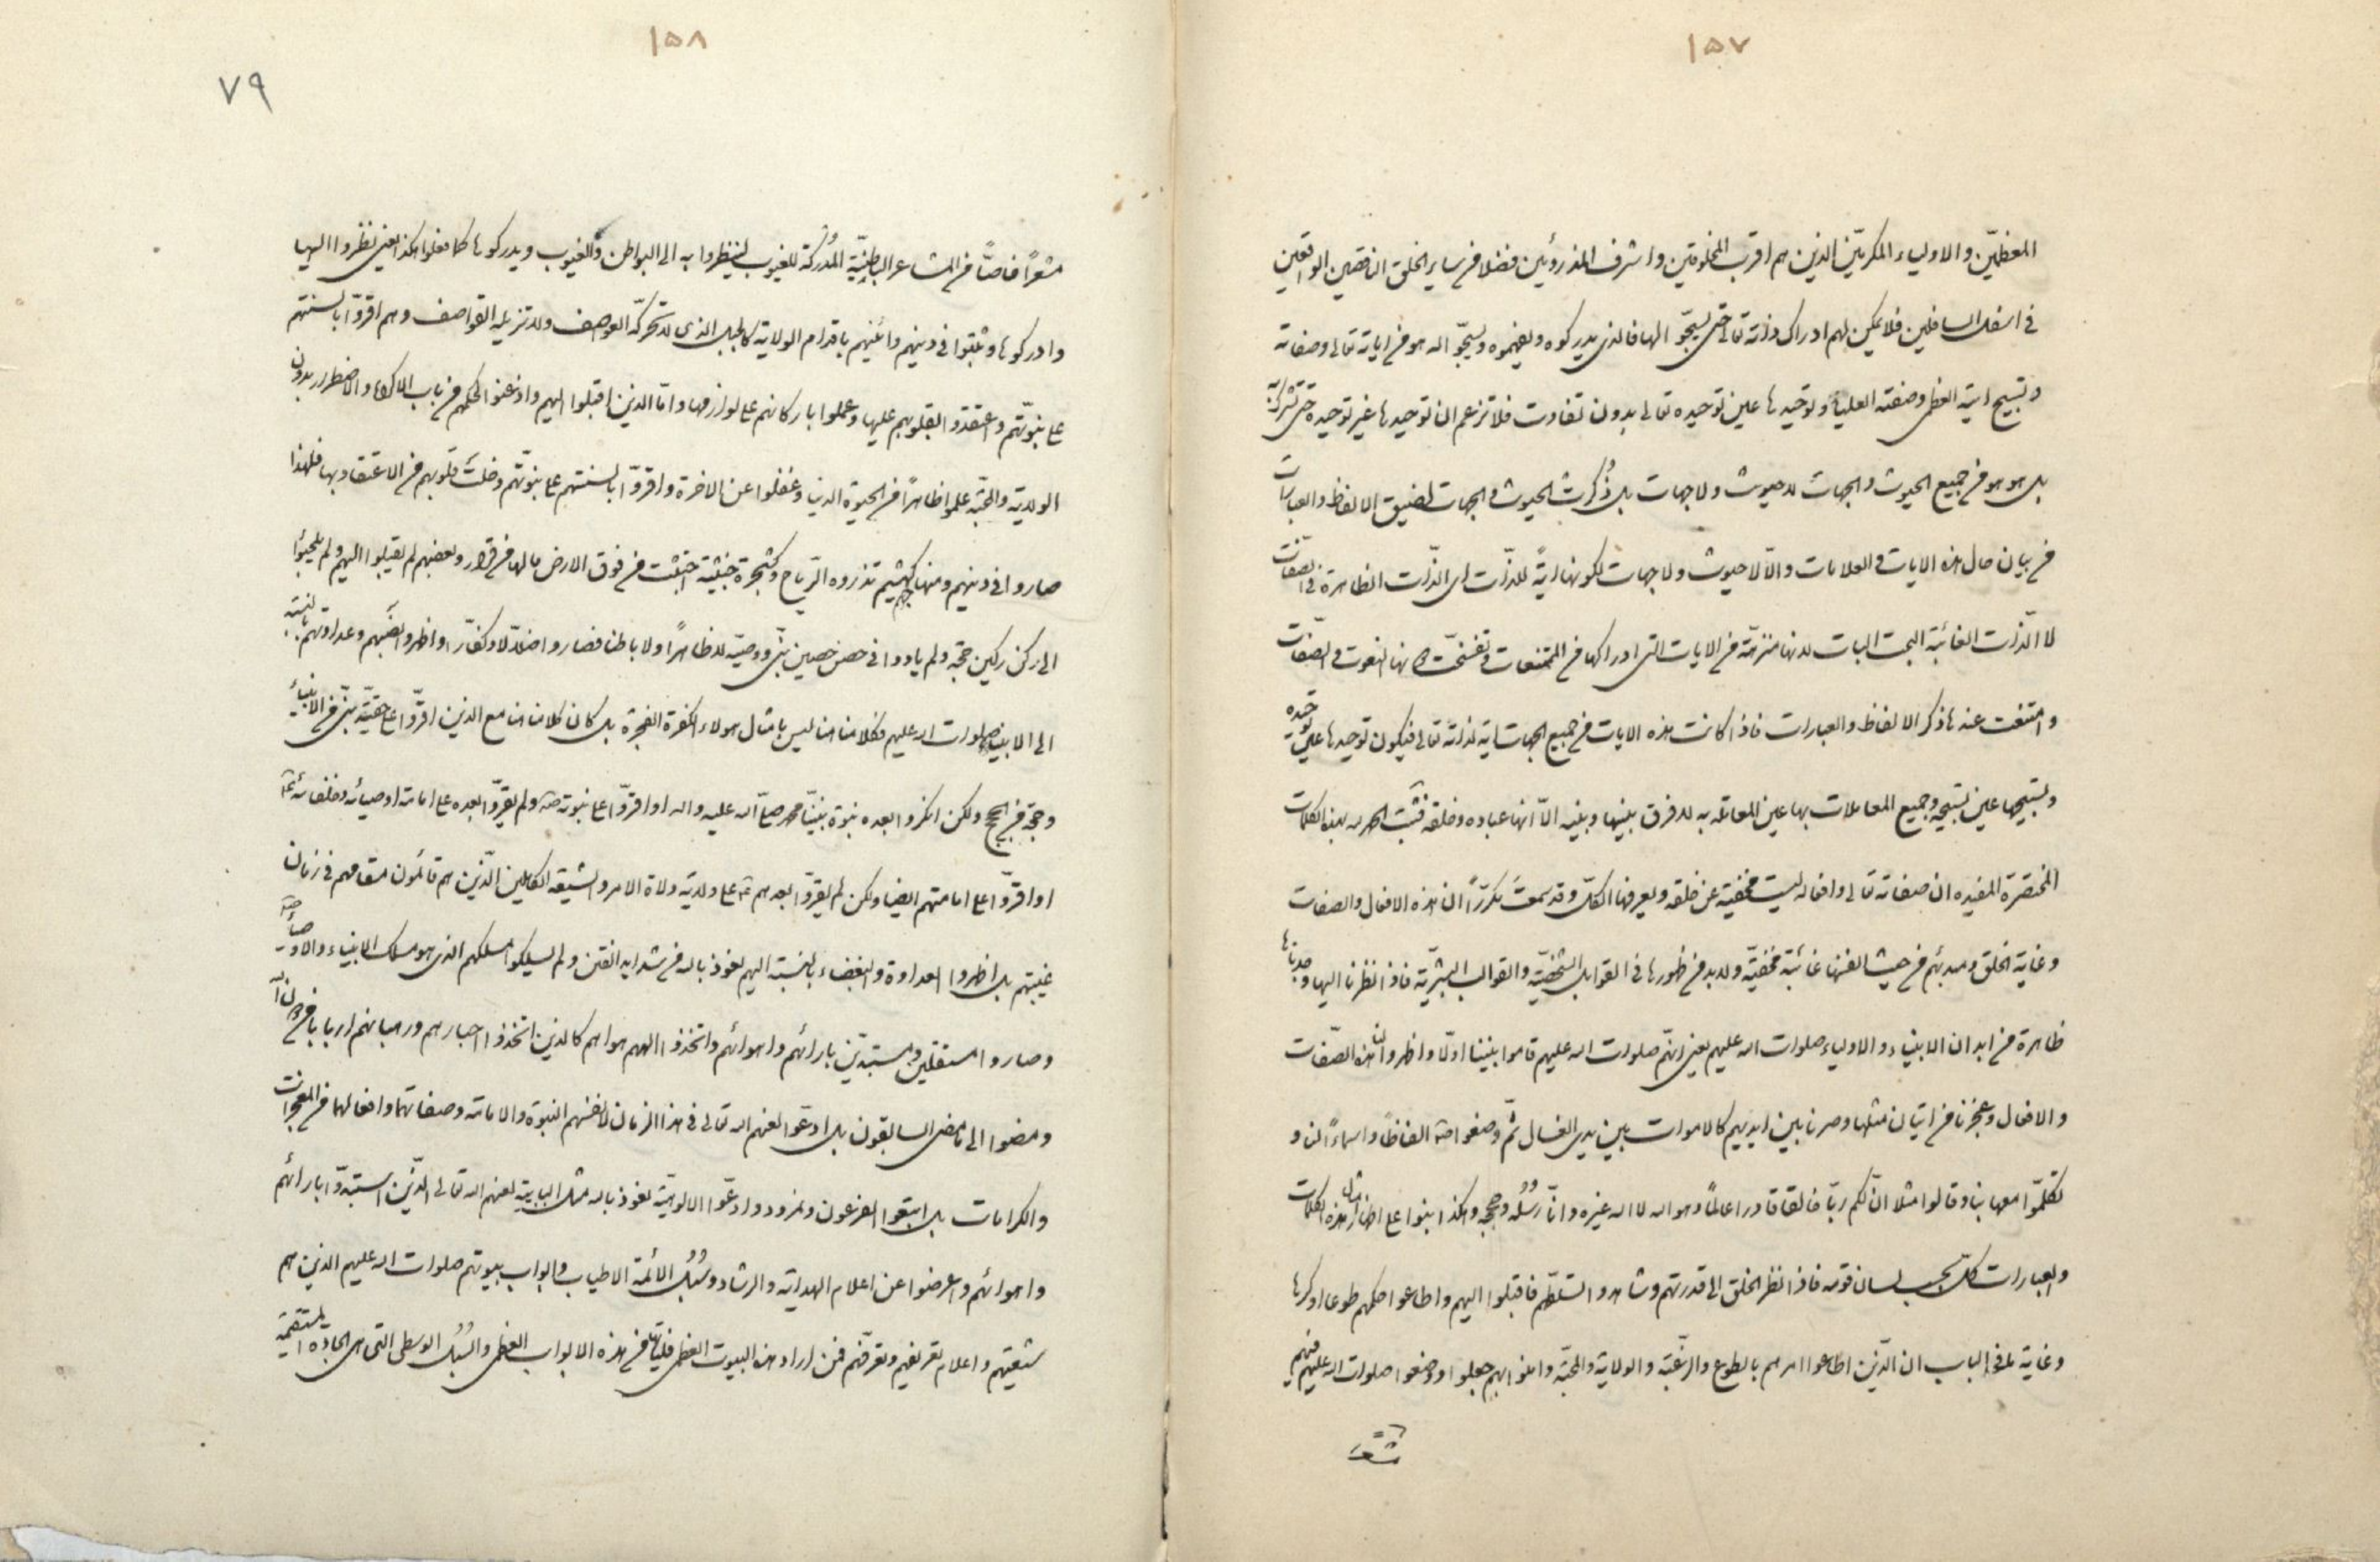 ١٥٧
المعظمين والاولياء المكرمين الذين هم اقرب المخلوقين واشرف المذروئين فضلا من ساير الخلق الناقصين الواقعين
في اسفل السافلين فلا يمكن لهم ادراك ذاته تعالى حتى يسبحوا لها فالذي يدركوه ويفهموه ويسبحوا له هو من اياته تعالى وصفاته
وتسبيح ايته العظمى وصفته العلياء وتوحيدها عين توحيده تعالى بدون تفاوت فلا تزعم ان توحيدها غير توحيده حتى
بل هو هو من جميع الحيوث والجهات لا حيوث ولا جهات بل ذكرت الحيوث والجهات لضيق الالفاظ والعبارات
في بيان حال هذه الايات والعلامات والا لا حيوث ولا جهات لكونها اية للذات اي الذات الظاهرة في الصفات
لا الذات الغائبة البحت البات لانها منزهة من الايات التي ادراكها من الممتنعات وتفسخت النعوت والصفات
وامتنعت عندها ذكر الالفاظ والعبارات فاذا كانت هذه الايات من جميع الجهات اية لذاته تعالى فيكون توحيدها عين توحيده
وتسبيحها عين تسبيحه وجميع المعاملات بها عين المعاملة به لا فرق بينها وبينه الا انها عباده وخلقه فثبت الحمد لله بهذه الكلمات
المختصرة المفيده ان صفاته تعالى وافعاله ليست مخفية عن خلقه ويعرفها الكل وقد سمعت مكررا ان هذه الافعال والصفات
وغاية الخلق ومبدئهم من حيث انفسها غائبة مخفية ولا بد من ظهورها في القوابل الشخصية والقوالب البشرية فاذا نظرنا اليها وجدناها
ظاهرة من ابدان الانبياء والاولياء صلوات الله عليهم يعني انهم صلوات الله عليهم قاموا بيننا اولا واظهروا لنا هذه الصفات
والافعال وعجزنا من اتيان مثلها وصرنا بين ايديهم كالاموات بين يدي الغسال ثم وضعوا الفاظا واسماء لنا و
تكلموا معها بنا وقالوا مثلا ان لكم ربا خالقا قادرا عالما وهو الله لا اله غيره وانا رسله وحججه وهكذا بنوا على اظهار امثال هذه الكلمات
والعبارات كل بحسب لسان قومه فاذا نظر الخلق الى قدرتهم وشاهدوا تسلطهم فاقبلوا اليهم واطاعوا حكمهم طوعا او كرها
وغاية ما في الباب ان الذين اطاعوا امرهم بالطوع والرغبة والولاية والمحبة وامنوا بهم جعلوا ووضعوا صلوات الله عليهم فيهم
١٥٨
٧٩
مشعرا خاصا من المشاعر الباطنية المدركة للغيوب لينظروا به الى البواطن والغيوب ويدركوها كما فعلوا هكذا يعني نظروا اليها
وادركوها وثبتوا في دينهم وائنيهم باقدام الولاية كالجبل الذي لا تحركه العواصف ولا تزيله القواصف وهم اقروا بالسنتهم
على نبوتهم واعتقدوا بقلوبهم عليها وعملوا باركانهم على لوازمها واما الذين اقبلوا اليهم واذعنوا لحكمهم من باب الاكراه والاضطرار بدون
الولاية والمحبة علموا ظاهرا من الحيوة الدنيا وغفلوا عن الاخرة واقروا بالسنتهم على نبوتهم وخلت قلوبهم من الاعتقاد بها فلهذا
صاروا في دينهم كهشيم تذروه الرياح وكشجرة خبيثة اجتثت من فوق الارض ما لها من قرار وبعضهم لم يقبلوا اليهم ولم يلجئوا
الى ركن ركين حجة ولم ياووا في حصن حصين نبي ووصيه لا ظاهرا ولا باطنا فصاروا ضلالا وكفارا واظهروا بغضهم وعداوتهم بالنسبة
الى الانبياء صلوات الله عليهم فكلامنا هنا ليس بامثال هولاء الكفرة الفجرة بل كان كلامنا هنا مع الذين اقروا على حقية نبي من الانبياء
وحجة من الحجج ولكن انكروا بعده نبوة نبينا محمد صلى الله عليه واله او اقروا على نبوته ولم يقروا بعده على امامة اوصيائه وخلفائه
او اقروا على امامتهم ايضا ولكن لم يقروا بعدهم على ولاية ولاة الامر والشيعة الكاملين الذين هم قائمون مقامهم في زمان
غيبتهم بل اظهروا العداوة والبغضاء بالنسبة اليهم نعوذ بالله من شدايد الفتن ولم يسلكوا مسلكهم الذي هو مسلك الانبياء والاوصياء
وصاروا مستقلين ومستبدين بارائهم واهوائهم واتخذوا الههم هواهم كالذين اتخذوا احبارهم ورهبانهم اربابا من دون الله
ومضوا الى ما مضى السابقون بل ادعوا لعنهم الله تعالى في هذا الزمان لانفسهم النبوة والامامة وصفاتهما وافعالهما من المعجزات
والكرامات بل اتبعوا الفرعون ونمرود وادعوا الالوهية نعوذ بالله مثل البابية لعنهم الله تعالى الذين استبدوا بارائهم
واهوائهم واعرضوا عن اعلام الهداية والرشاد وسبل الائمة الاطياب وابواب بيوتهم صلوات الله عليهم الذين هم
شيعتهم واعلام تعريفهم وتعرفهم فمن اراد هذه البيوت العظمى فلياتها من هذه الابواب العظمى والسبل الوسطى التي هي الجادة المستقيمة